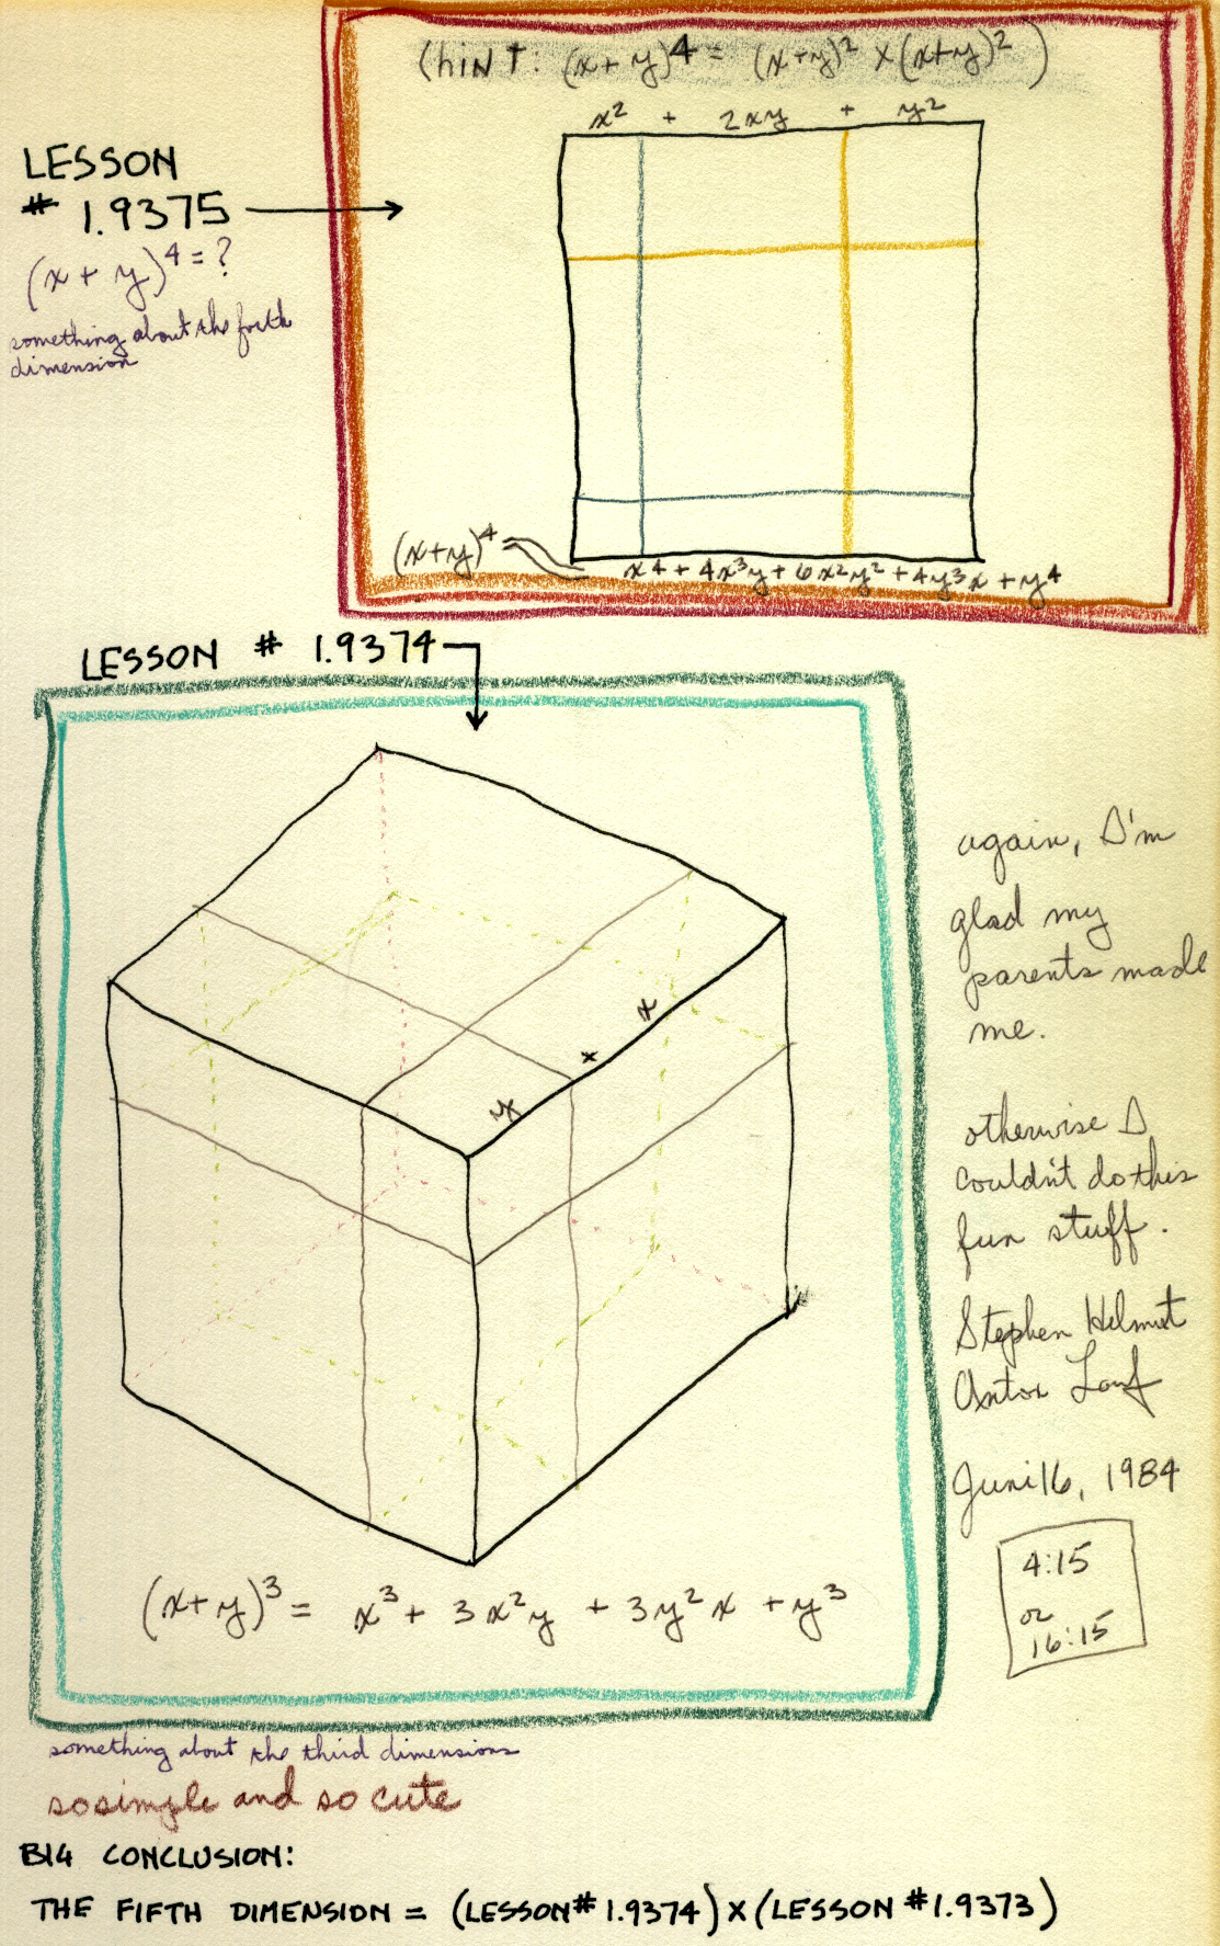 (hint: (x+y)⁴ = (x+y)² x (x+y)²)
x² + 2xy + y²
LESSON
# 1.9375
(x + y)⁴ = ?
something about the forth
dimension
(x+y)⁴ =
x⁴ + 4x³y + 6x²y² + 4y³x + y⁴
LESSON # 1.9374
y + x
(x+y)³ = x³ + 3x²y + 3y²x + y³
again, I'm
glad my
parents made
me.
otherwise I
couldn't do this
fun stuff.
Stephen Helmut
Anton Lauf
Juni 16, 1984
4:15
or
16:15
something about the third dimensions
so simple and so cute
BIG CONCLUSION:
THE FIFTH DIMENSION = (LESSON # 1.9374) X (LESSON # 1.9373)